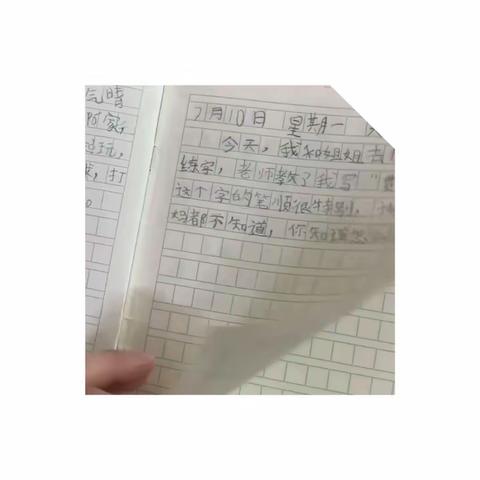 气晴
家,
玩,
打
7月10日 星期一
今天,我和姐姐去
练字,老师教了我写"
这个字的笔顺很特别,
妈都不知道,你知道怎